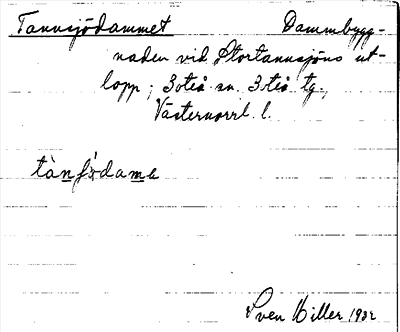 Tannsjödammet Dammbygg-
naden vid Stortannsjöns ut-
lopp; Zoteå sn. Zteå tg.,
Västernorrl. l.
tànʃödamɛ
Sven Hiller 1932